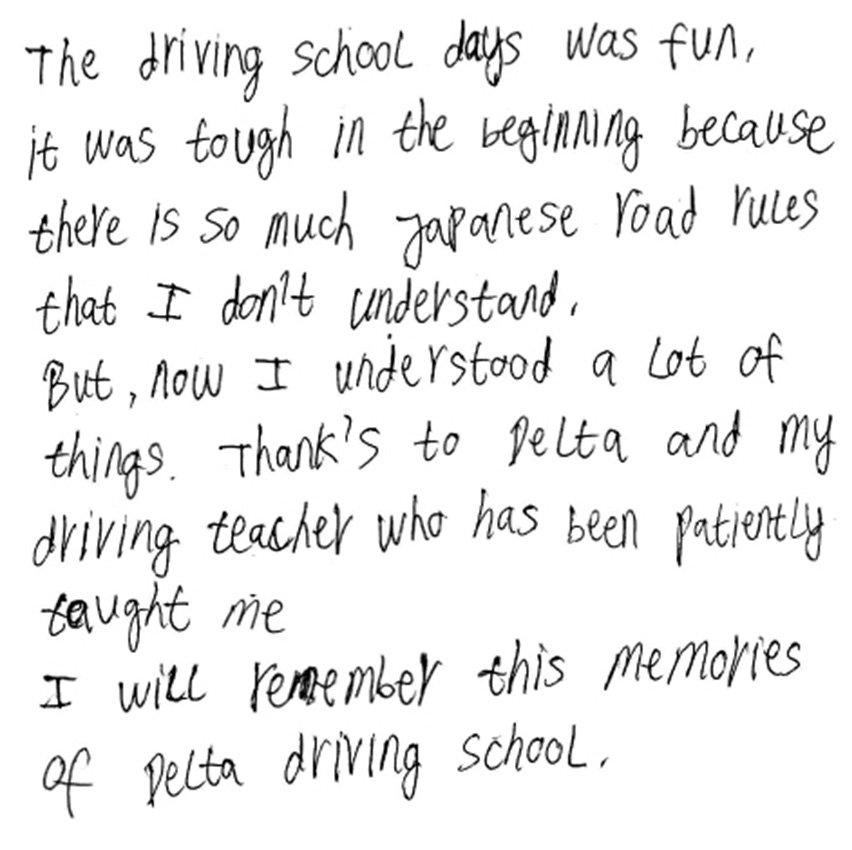 The driving school days was fun,
it was tough in the beginning because
there is so much Japanese road rules
that I don't understand.
But, now I understood a lot of
things. Thank's to Delta and my
driving teacher who has been patiently
taught me
I will remember this memories
of Delta driving school.